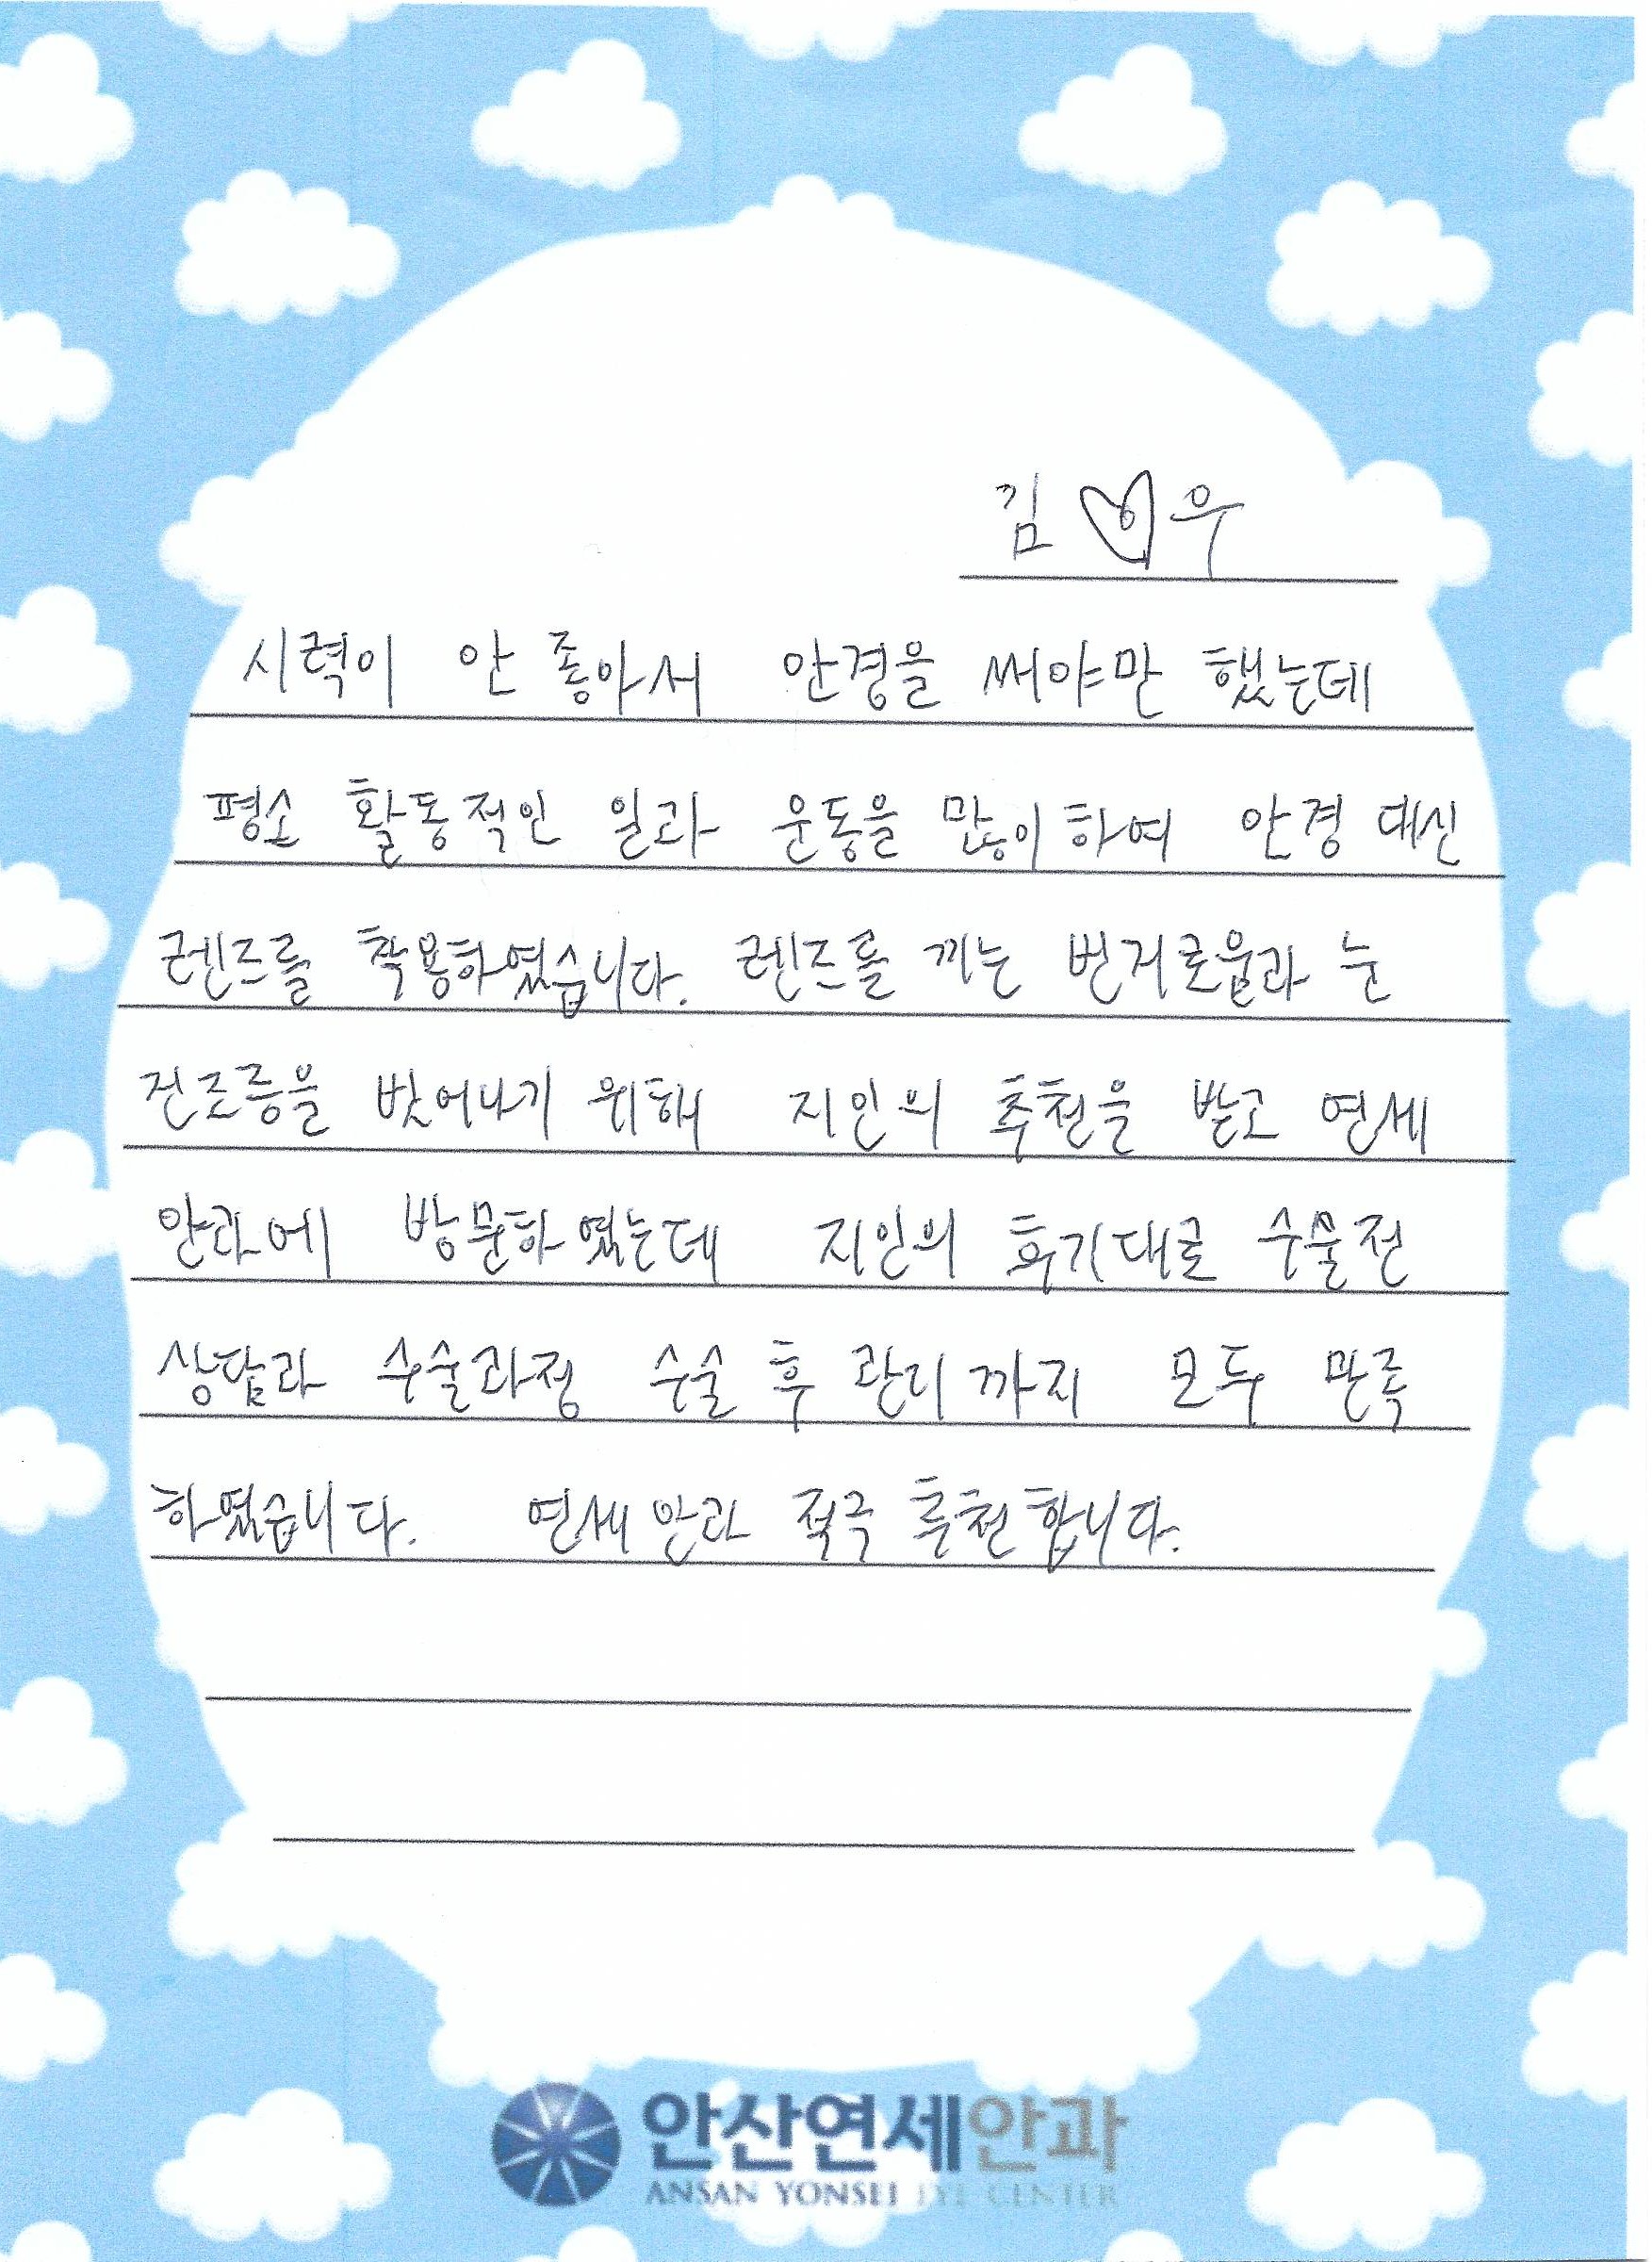 김♡우
시력이 안 좋아서 안경을 써야만 했는데
평소 활동적인 일과 운동을 많이 하여 안경 대신
렌즈를 착용하였습니다. 렌즈를 끼는 번거로움과 눈
건조증을 벗어나기 위해 지인의 추천을 받고 연세
안과에 방문하였는데 지인의 후기대로 수술전
상담과 수술과정 수술 후 관리까지 모두 만족
하였습니다. 연세안과 적극 추천합니다.
안산연세안과
ANSAN YONSEI EYE CENTER